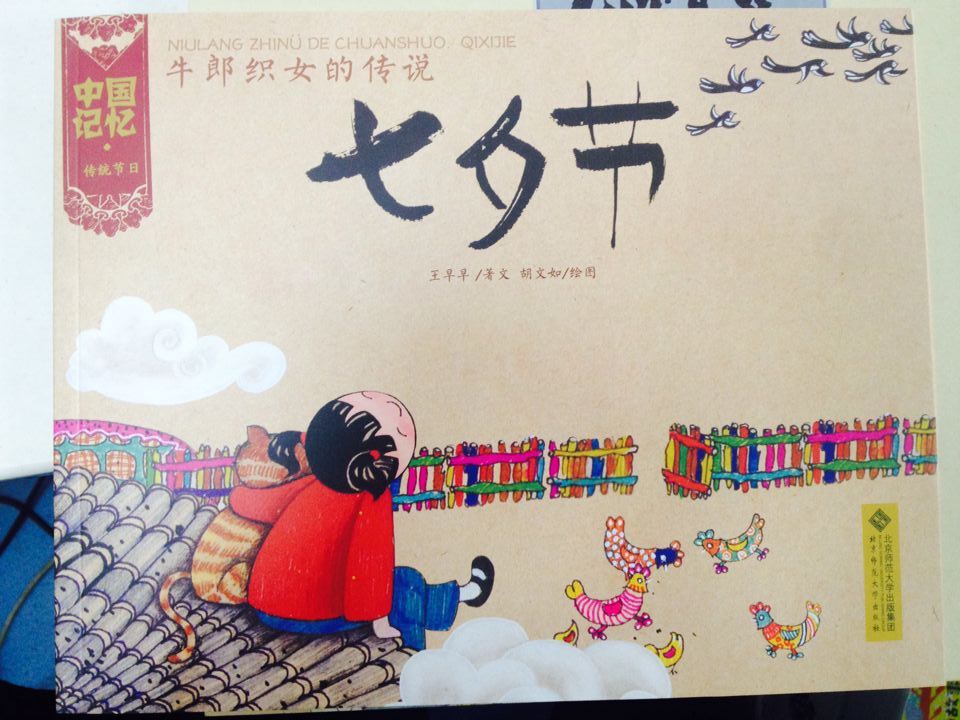 NIULANG ZHINÜ DE CHUANSHUO. QIXIJIE
牛郎织女的传说
中国
记忆
传统节日
七夕节
王早早/著文 胡文如/绘图
北京师范大学出版集团
北京师范大学出版社